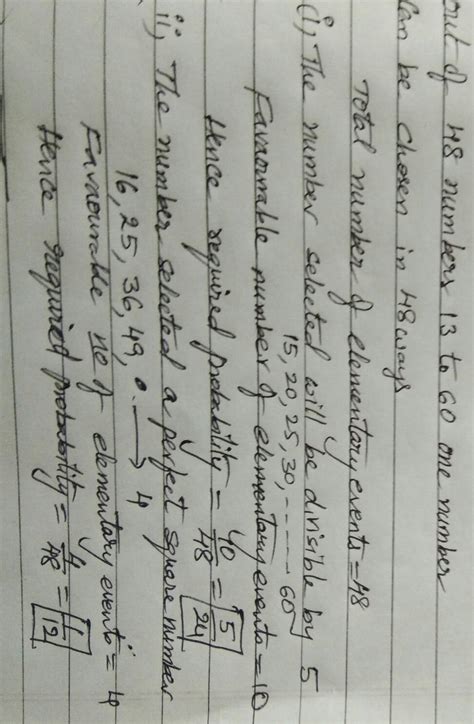 out of 48 numbers 13 to 60 one number
can be chosen in 48 ways
Total number of elementary events = 48
(i) The number selected will be divisible by 5
15, 20, 25, 30, ------ 60
Favourable number of elementary events = 10
Hence required probability = 10/48 = 5/24
ii, The number selected a perfect square number
16, 25, 36, 49, → 4
Favourable no of elementary events = 4
Hence required probability = 4/48 = 1/12